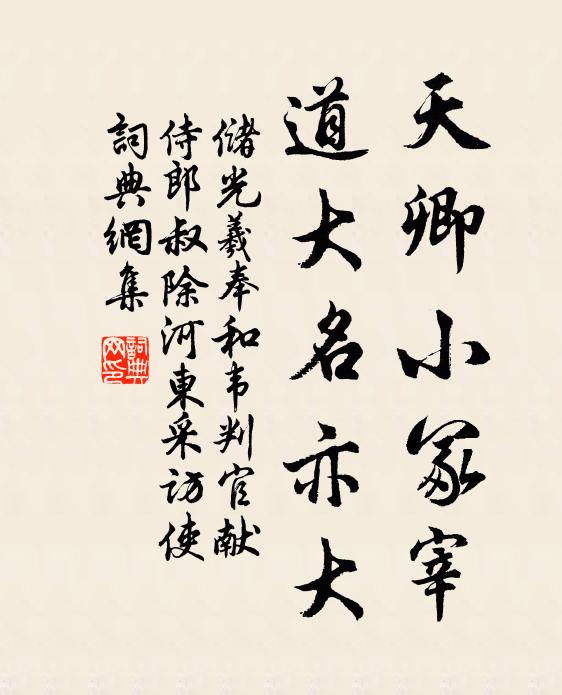 天卿小冢宰
道大名亦大
储光羲奉和韦判官献
侍郎叔除河東采访使
詞典網集
詞典网印